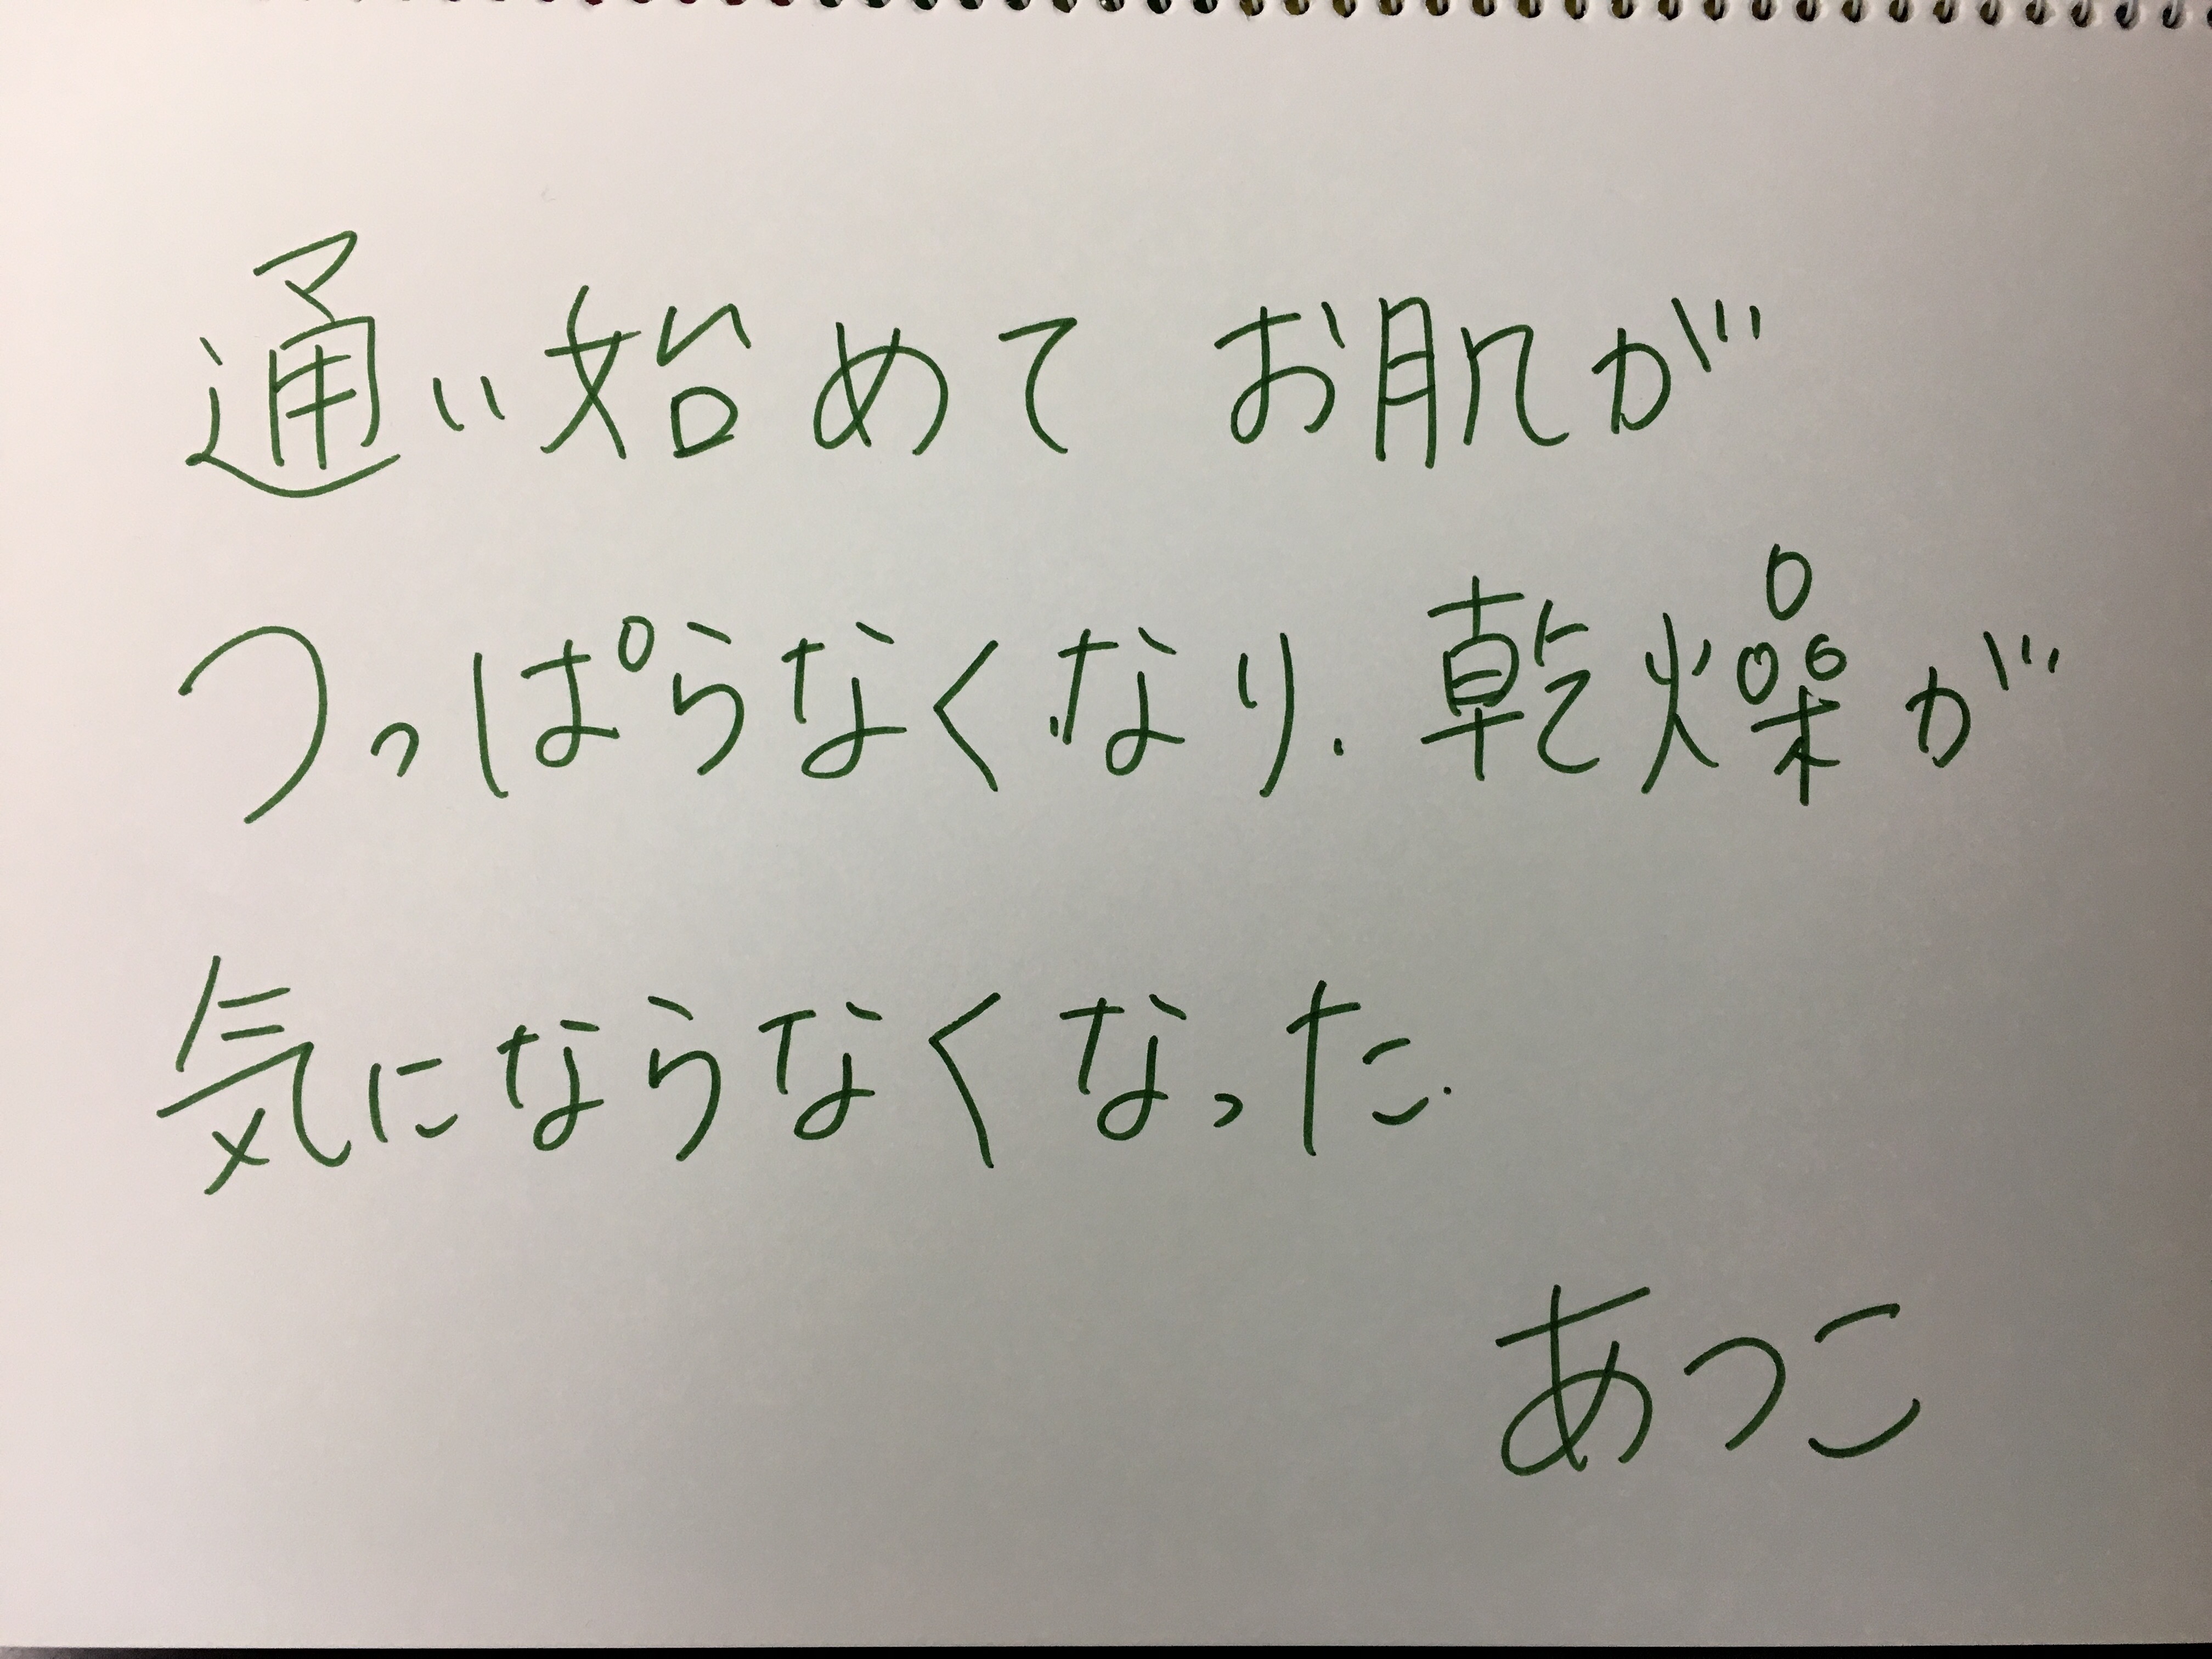 通い始めて お肌が
つっぱらなくなり、乾燥が
気にならなくなった.
あつこ